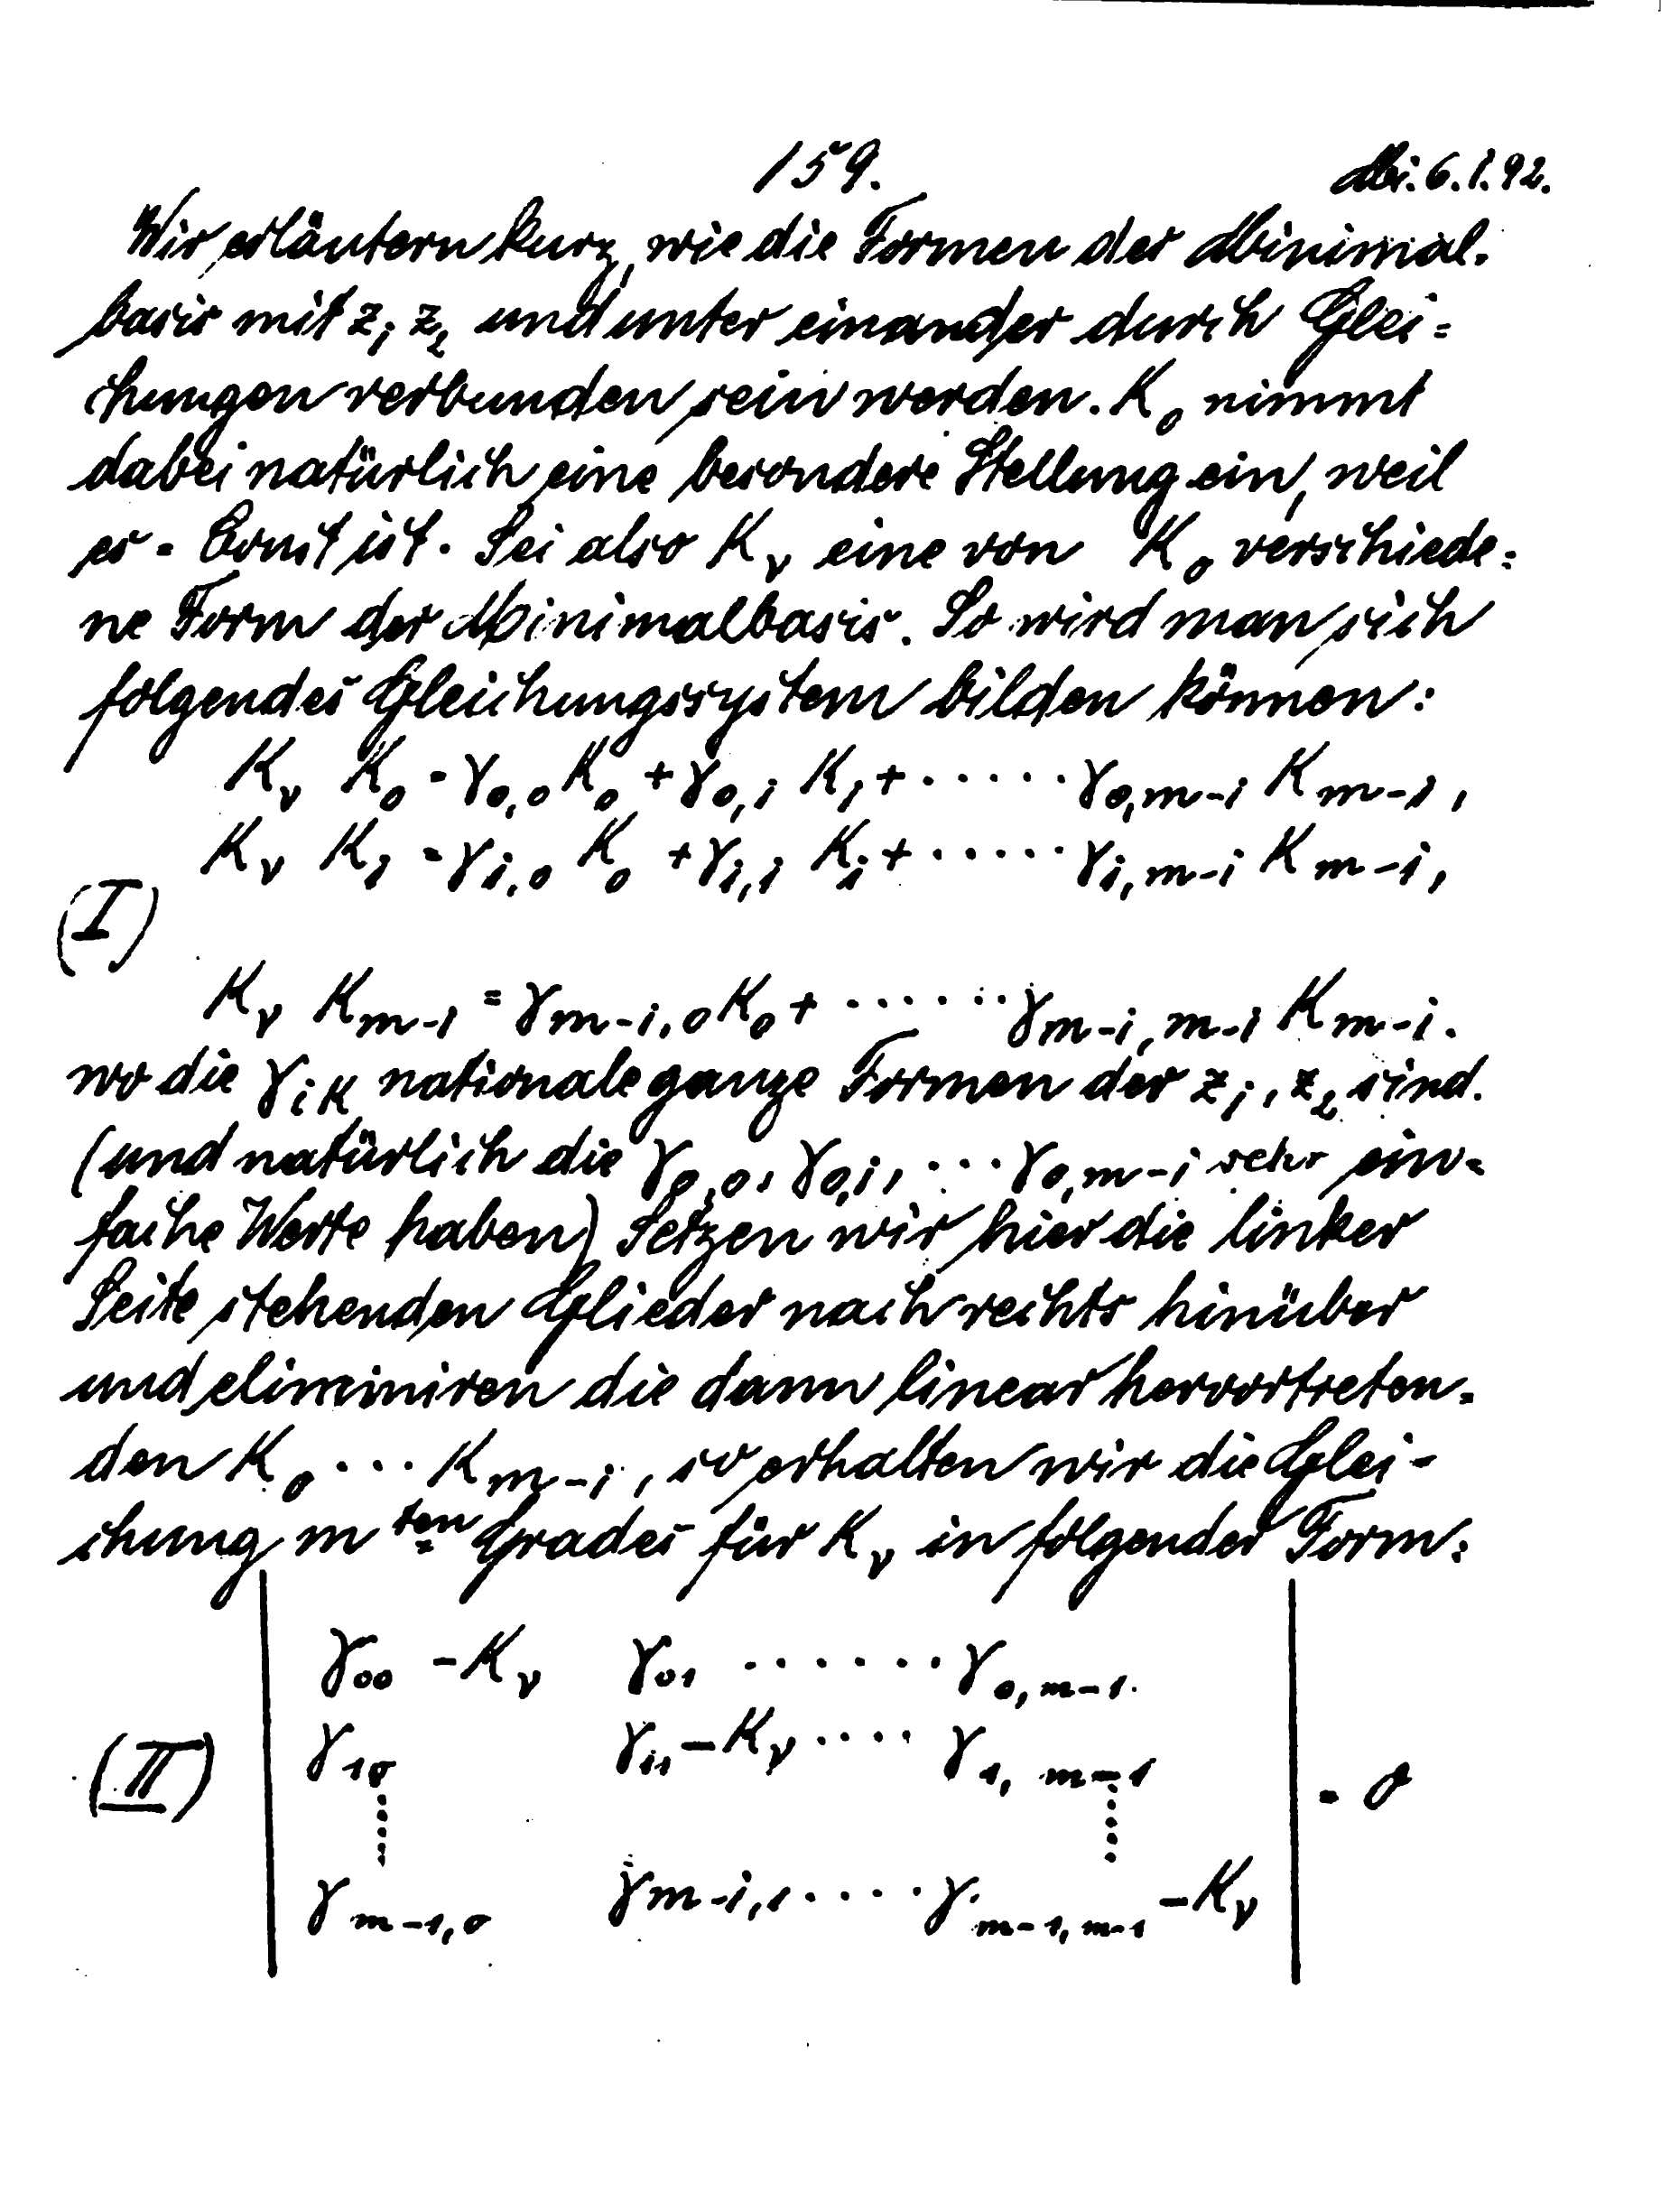 159.
Mi. 6. 1. 92.
Wir erläutern kurz, wie die Formen der Minimal-
basis mit z₁ z₂ und unter einander durch Glei=
chungen verbunden sein werden. K₀ nimmt
dabei natürlich eine besondere Stellung ein, weil
es = Const ist. Sei also K_ν eine von K₀ verschiede=
ne Form der Minimalbasis. So wird man sich
folgendes Gleichungssystem bilden können:
K_ν K₀ = γ₀,₀ K₀ + γ₀,₁ K₁ + ..... γ₀,m-1 K m-1,
K_ν K₁ = γ₁,₀ K₀ + γ₁,₁ K₁ + ..... γ₁,m-1 K m-1,
(I)
K_ν K m-1 = γ m-1,0 K₀ + ...... γ m-1, m-1 K m-1.
wo die γ i k rationale ganze Formen der z₁, z₂ sind.
(und natürlich die γ₀,₀, γ₀,₁, ... γ₀,m-1 sehr ein=
fache Werte haben) Setzen wir hier die linker
Seite stehenden Glieder nach rechts hinüber
und eliminiren die dann linear hervortreten=
den K₀ ... K m-1, so erhalten wir die Glei-
chung m ten Grades für K_ν in folgender Form:
γ₀₀ - K_ν γ₀₁ ....... γ₀, m-1.
γ₁₀ γ₁₁ - K_ν .... γ₁, m-1
(II) = 0
γ m-1,0 γ m-1,1 .... γ m-1, m-1 - K_ν